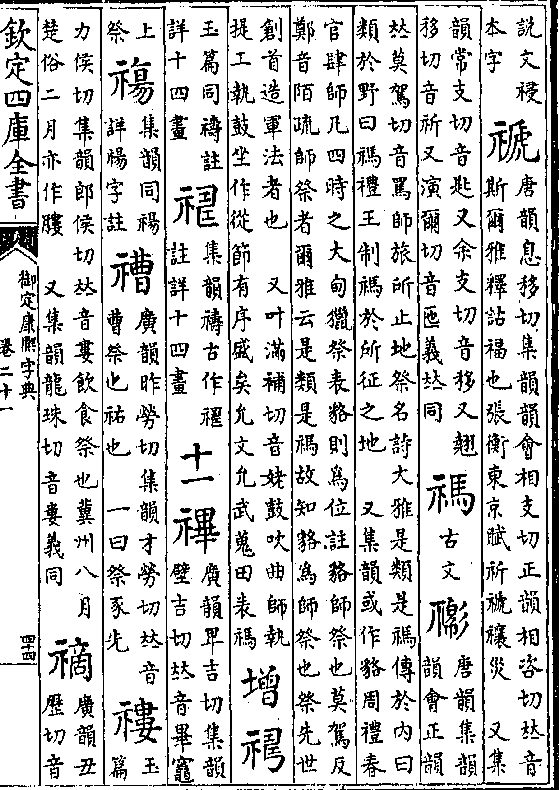 說文祲
本字
禠
唐韻息移切集韻韻會相支切正韻相咨切𠀤音
斯爾雅釋詁福也張衡東京賦祈禠禳災 又集
韻常支切音匙又余支切音移又翹
移切音祈又演爾切音匜義𠀤同
禡 古文
唐韻集韻
韻會正韻
𠀤莫駕切音罵師旅所止地祭名詩大雅是類是禡傳於内曰
類於野曰禡禮王制禡於所征之地 又集韻或作貉周禮春
官肆師凡四時之大甸獵祭表貉則爲位註貉師祭也莫駕反
鄭音陌疏師祭者爾雅云是類是禡故知貉爲師祭也祭先世
創首造軍法者也 又叶滿補切音姥鼓吹曲師執
提工執鼓坐作從節有序盛矣允文允武蒐田表禡
增
玉篇同禱註
詳十四畫
集韻禱古作
註詳十四畫
十一
廣韻卑吉切集韻
壁吉切𠀤音畢竈
上
祭
集韻同禓
詳禓字註
廣韻昨勞切集韻才勞切𠀤音
曹祭也祐也 一曰祭豕先
玉
篇
力侯切集韻郎侯切𠀤音婁飲食祭也冀州八月
楚俗二月亦作膢 又集韻龍珠切音婁義同
廣韻丑
歷切音
欽定四庫全書
御定康熙字典
卷二十一
四十四